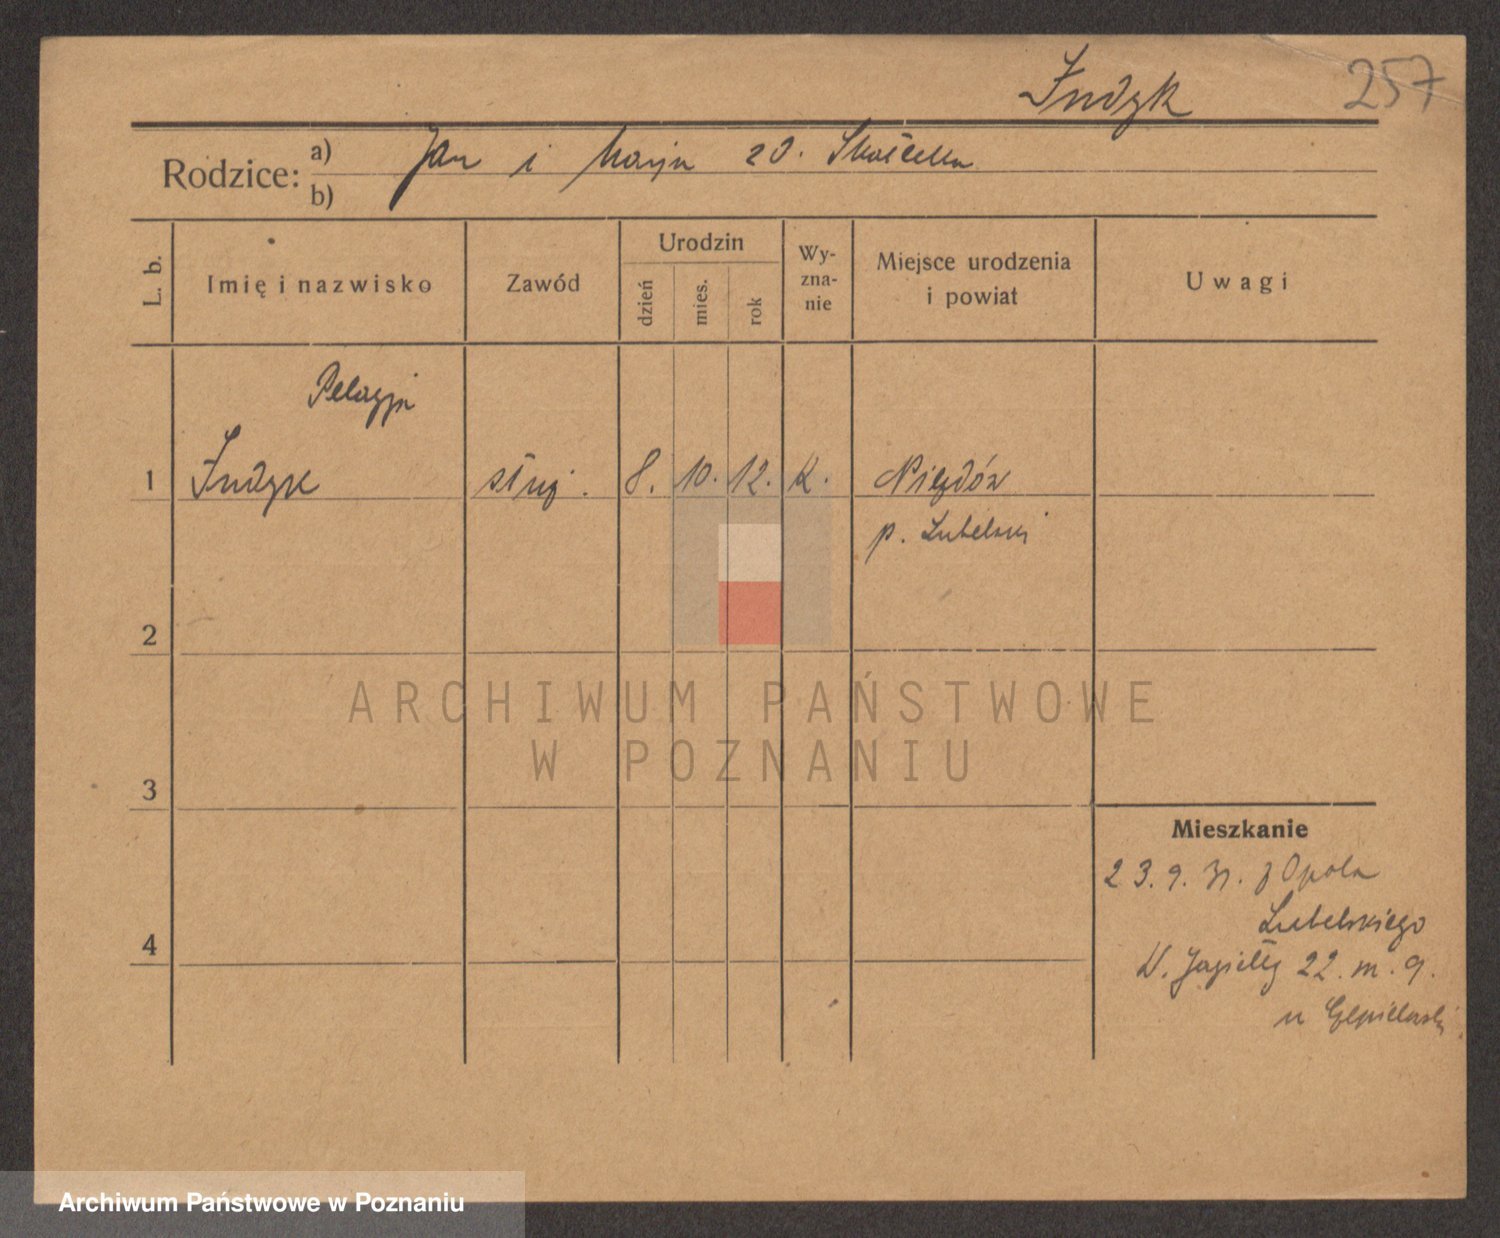 Indyk
257
Rodzice: a) Jan i Marja zd.
b)
L. b.
Imię i nazwisko
Zawód
Urodzin
dzień
mies.
rok
Wy-
zna-
nie
Miejsce urodzenia
i powiat
Uwagi
Pelagja
1 Indyk służ. 8. 10. 12. k.
p. Lubelski
2
3
4
Mieszkanie
23.9.31. z Opola
Lubelskiego
W. Jagiełły 22. m. 9.
u
ARCHIWUM PAŃSTWOWE
W POZNANIU
Archiwum Państwowe w Poznaniu